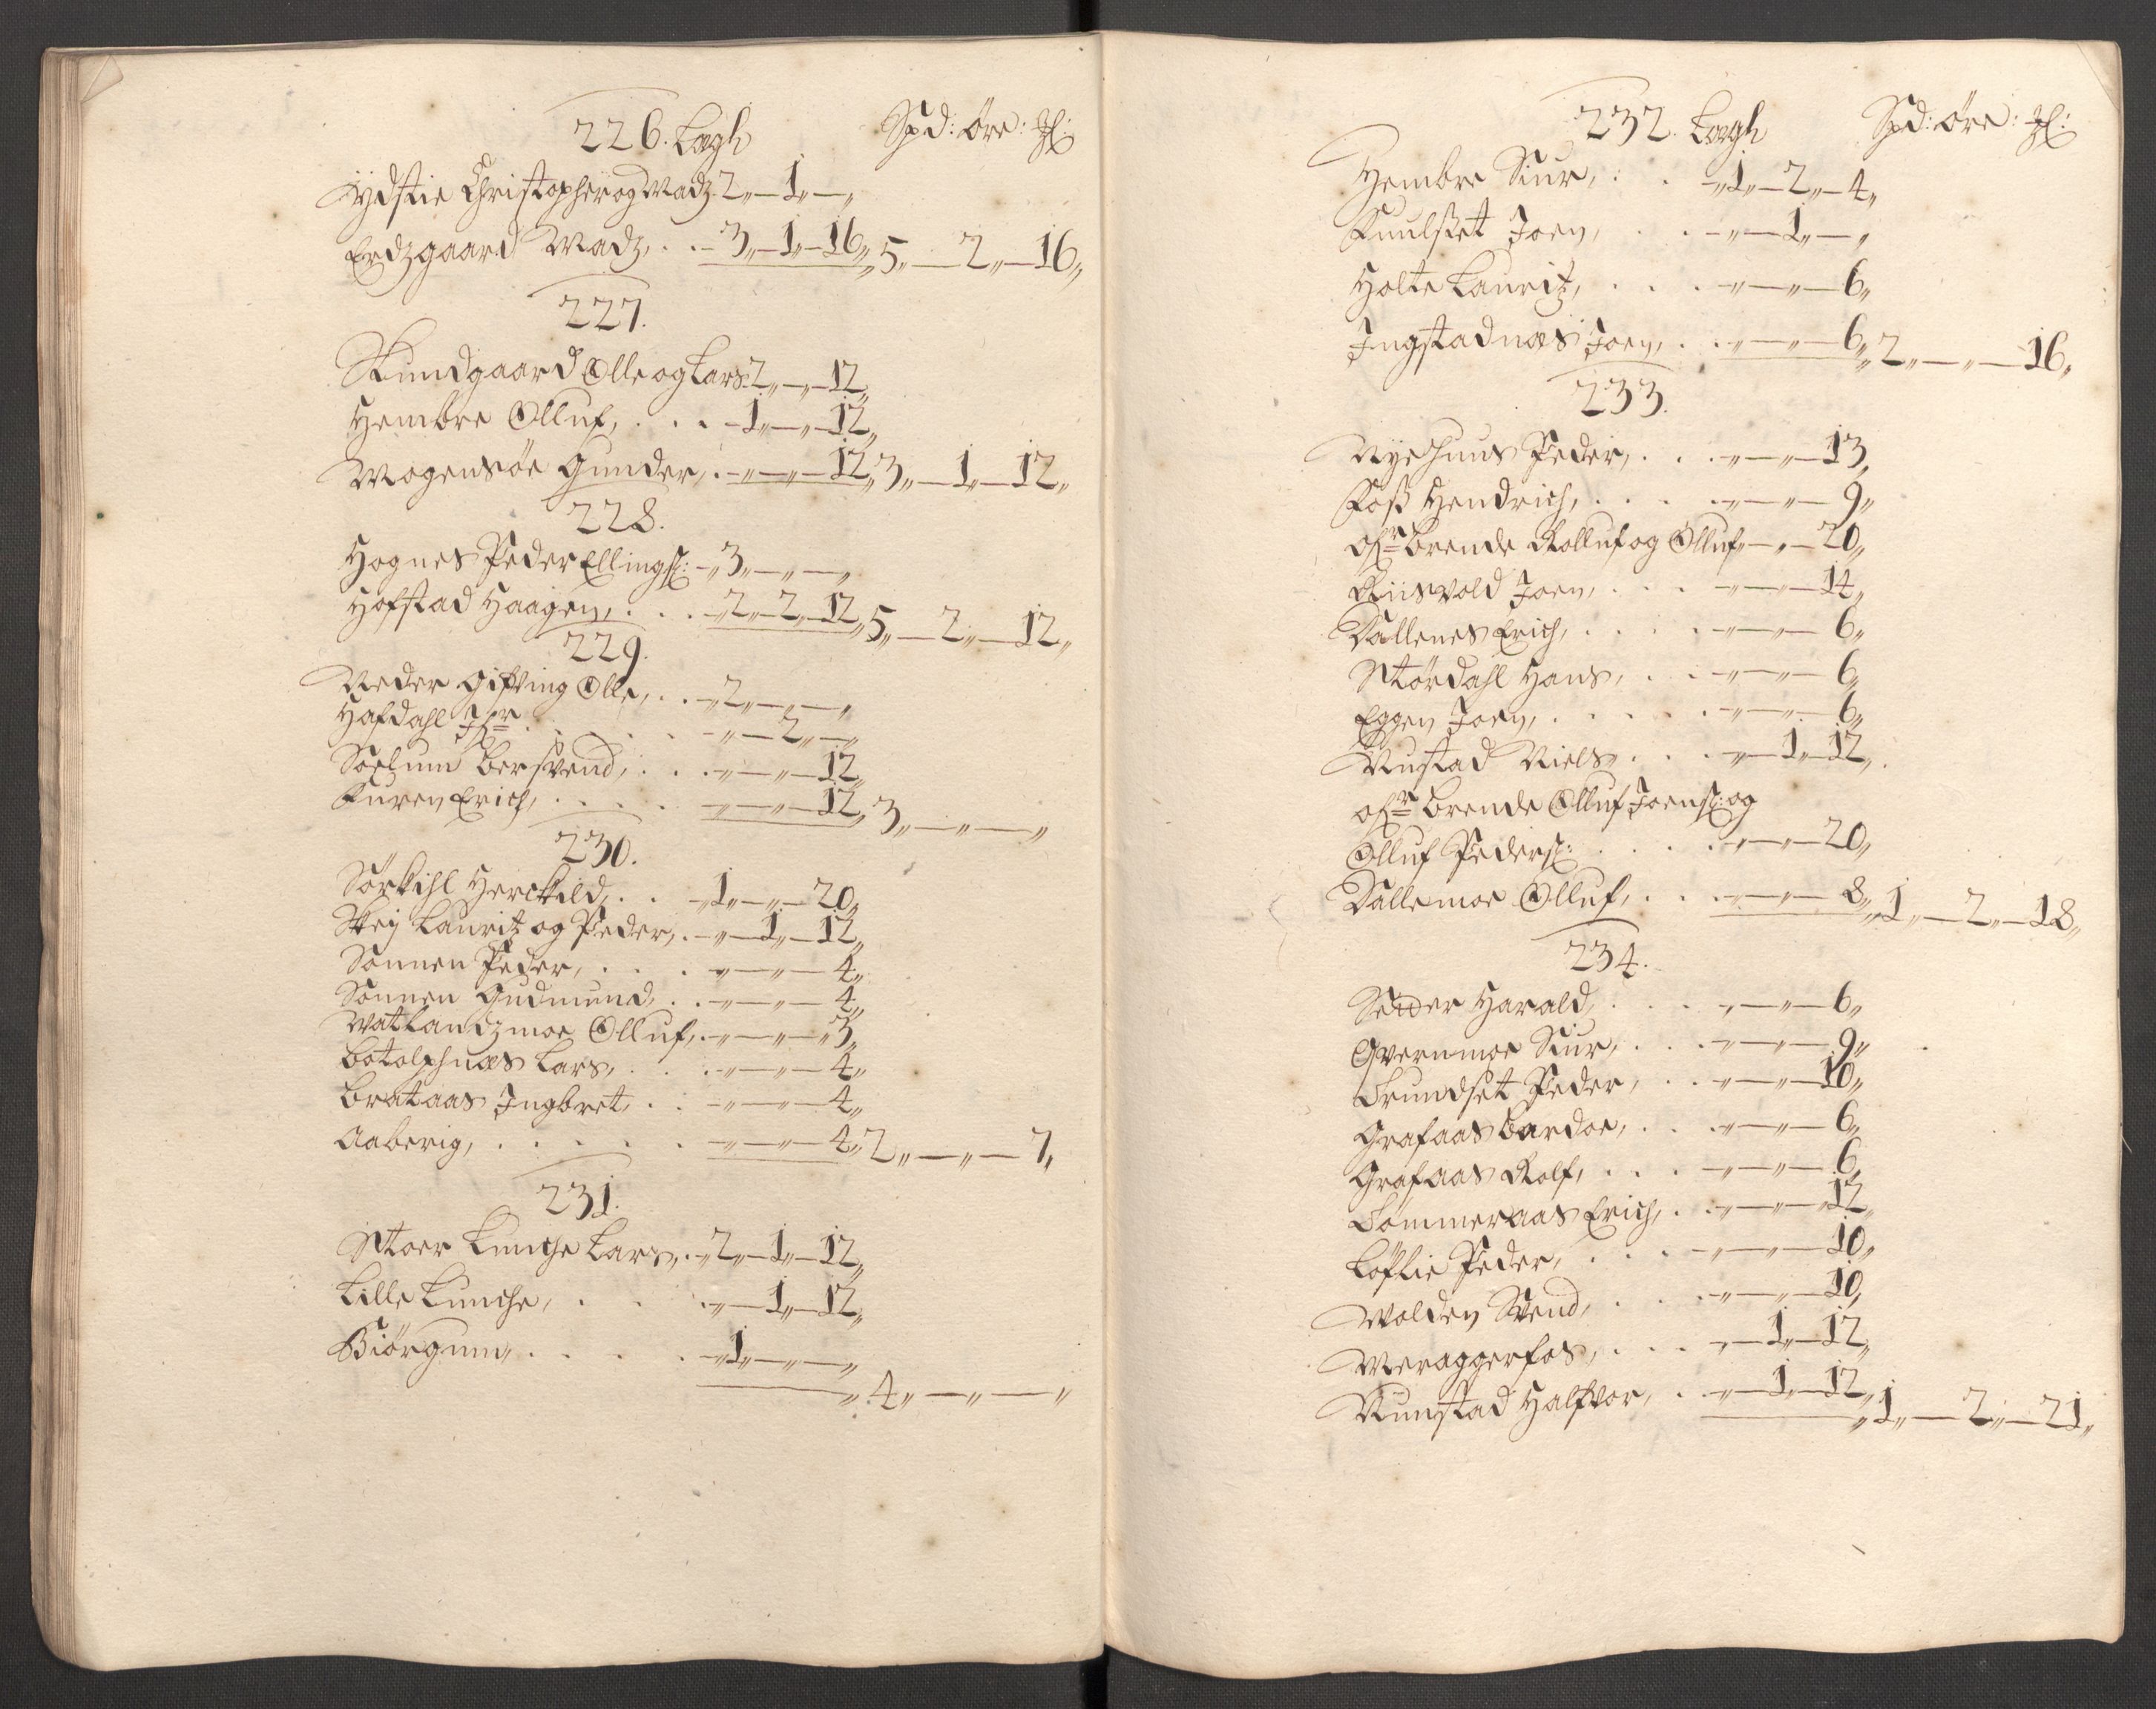 226. Lægh Spd: öre: 
Ydstie Christopher og Madz 2,,—1,,—,,
Erdzgaard Madz, . . -3,,—1,,—16,, 5,,—2,,—16,,
227.
Kundgaard Olle og Lars 2,,—,,—12,,
Hembre Olluf, . . . -1,,—,,—12,,
Mogensöe Gunder, . -,,—,,—12,, 3,,—1,,—12,,
228.
Hognes Peder Ellings: -,,3,,—,,—,,
Hofstad Haagen, . . . -2,,—2,,—12,, 5,,—2,,—12,,
229.
Neder Gifving Olle, . . -2,,—,,—,,
Hafdahl . . . . . -,,—2,,—,,
Soelum Bersvend, . . . -,,—,,—12,,
Furen Erich, . . . . -,,—,,—12,, 3,,—,,—,,
230.
Sörkihl Herckild, . . -1,,—,,—20,,
Skej Lauritz og Peder, . -,,—1,,—12,,
Sonnen Peder, . . . -,,—,,—4,,
Sonnen Gudmund, . . -,,—,,—4,,
Watlandzmoe Olluf, . -,,—,,—3,,
Botolphnæs Lars, . . . -,,—,,—4,,
Brataas Ingbret, . . -,,—,,—4,,
Aaberig, . . . . . -,,—,,—4,, 2,,—,,—7,,
231.
Stoer Lunche Lars, . -2,,—1,,—12,,
Lille Lunche, . . . -,,—1,,—12,,
Biörgum, . . . . -,,1,,—,,—,,
,,4,,—,,—,,
232. Lægh Spd: öre: 
Hembre Siur, . . -,,1,,—2,,—4,,
Kuulset Joen, . . -,,—1,,—,,
Holte Lauritz, . . . -,,—,,—6,,
Ingstadnæs Joen, . . -,,—,,—6,, 2,,—,,—16,,
233.
Nyehuus Peder, . . . -,,—,,—13,,
Foss Hendrich, . . . . -,,—,,—9,,
Ofr Brende Rolluf og Olluf,,—,,—20,,
Riisvold Joen, . . . -,,—,,—14,,
Dallenes Erich, . . . . -,,—,,—6,,
Stördahl Hans, . . -,,—,,—6,,
Eggen Joen, . . . . . -,,—,,—6,,
Rustad Niels . . . -,,—1,,—12,,
Ofr Brende Olluf Joens: og
Olluf Peders: . . . . -,,—,,—20,,
Dallemoe Olluf, . . . -,,—,,—8,, 1,,—2,,—18,,
234.
Seder Harald, . . . . -,,—,,—6,,
Qvernmoe Siur, . . . -,,—,,—9,,
Trundset Peder, . . -,,—,,—10,,
Grafaas Bardoe, . . . -,,—,,—6,,
Grafaas Rolf, . . . -,,—,,—6,,
Tommeraas Erich, . -,,—,,—12,,
Löflie Peder, . . . . -,,—,,—10,,
Wolden Svend, . . . -,,—,,—10,,
Meraggerfos, . . . -,,—1,,—12,,
Kunstad Halfvor, . -,,—1,,—12,, 1,,—2,,—21,,